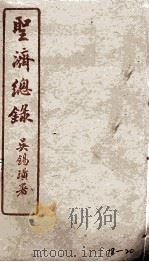 聖濟總錄
吳錫璜署
18-20
mtoou.info